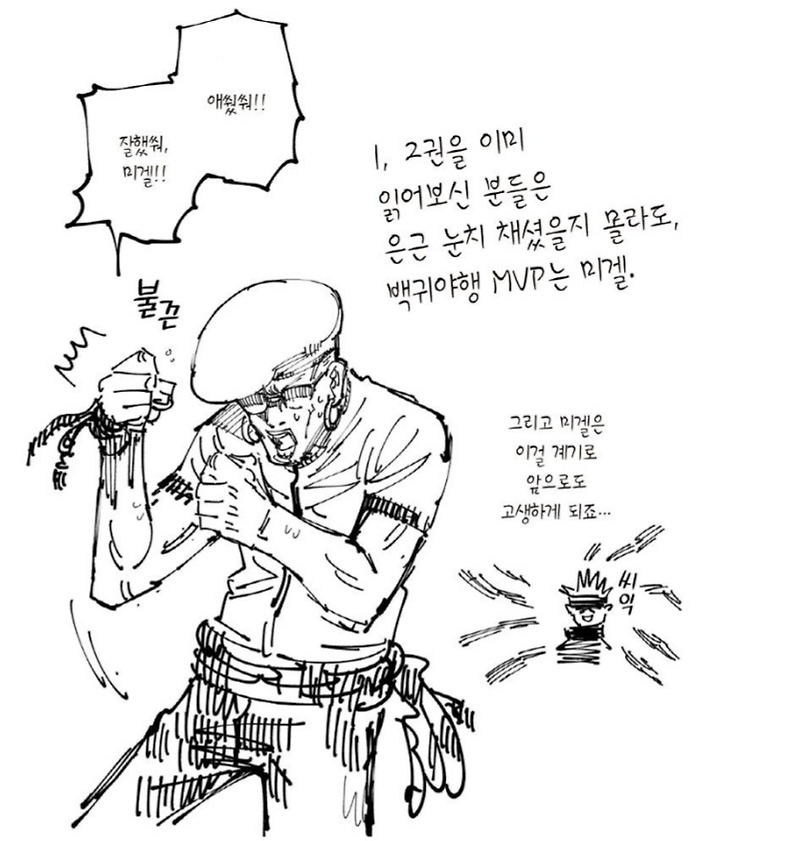 애썼쒀!!
잘했쒀,
미겔!!
1, 2권을 이미
읽어보신 분들은
은근 눈치 채셨을지 몰라도,
백귀야행 MVP는 미겔.
불끈
그리고 미겔은
이걸 계기로
앞으로도
고생하게 되죠...
씨익